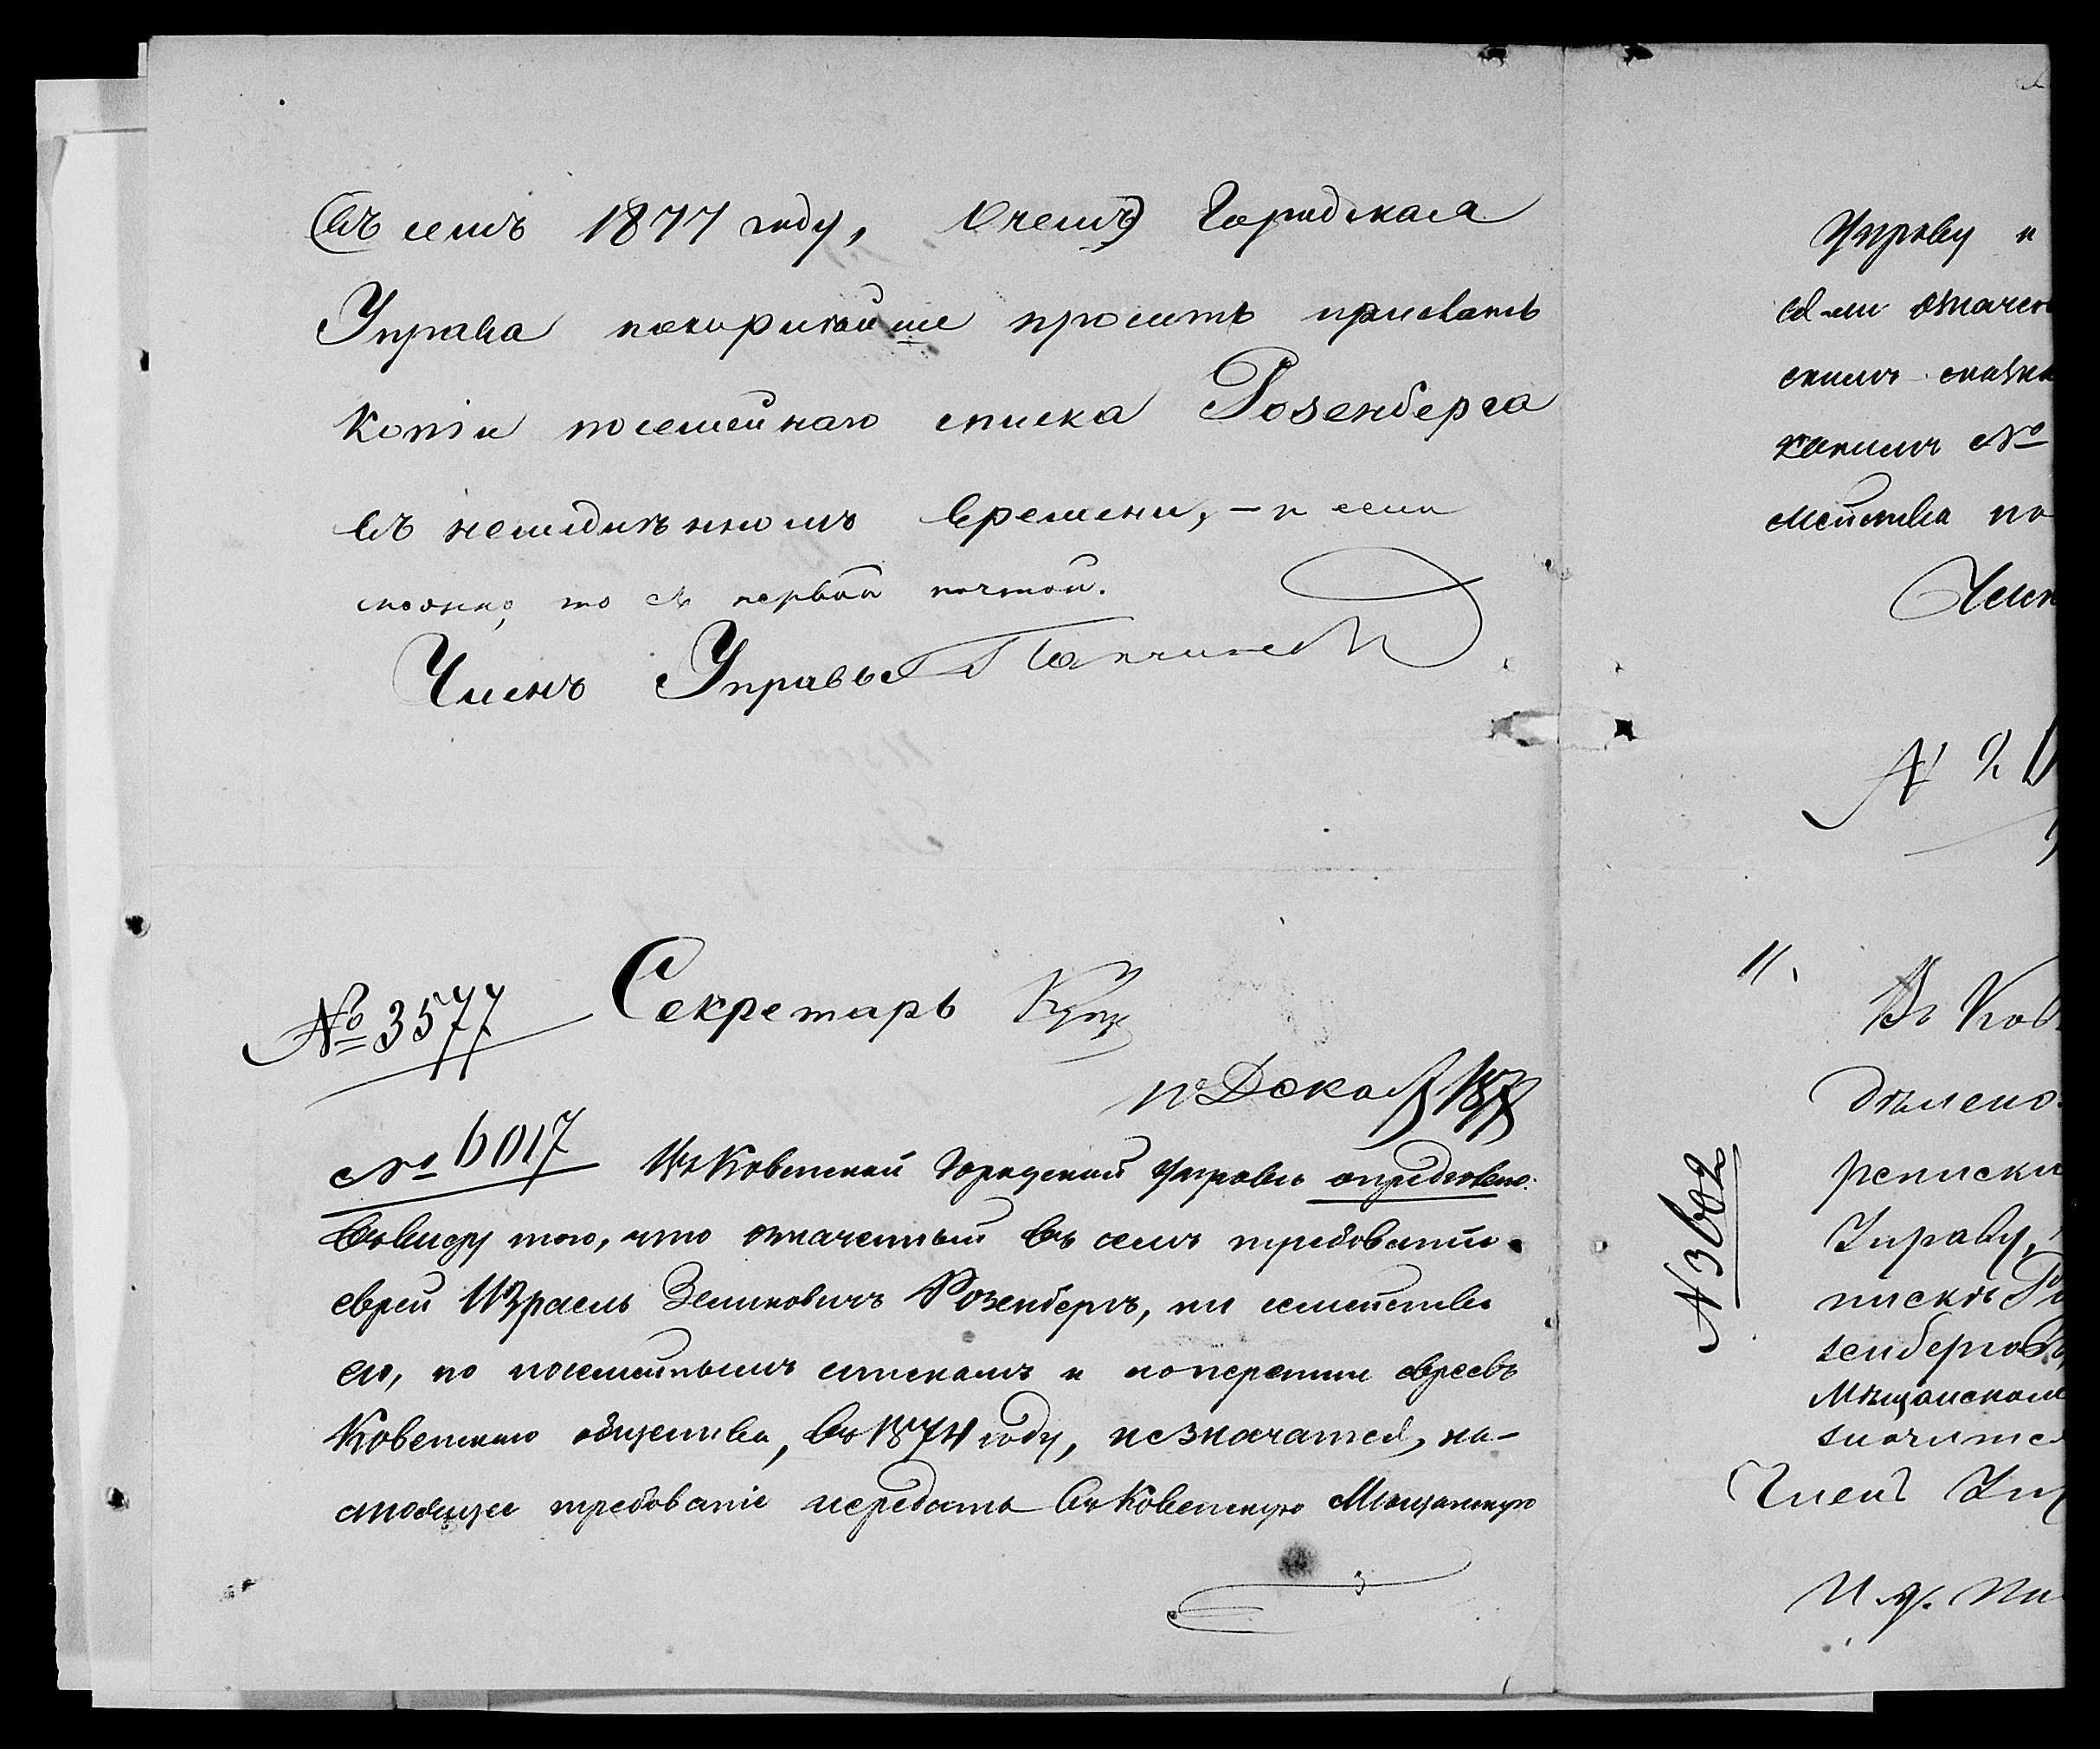 (въ семъ 1877 году, о чемъ) Городская
Управа покорнѣйше проситъ прислать
копіи посемейнаго списка Розенберга
въ непродолжительномъ времени, – и если
можно, то съ первой почтой.
Членъ Управы
Секретарь
№ 3577
№ 6017
Въ Ковенской Городской Управѣ опредѣлено:
Въ виду того, что означенный въ семъ требованіи
еврей Израель Зеликовичъ Розенбергъ, ни семейства
его, по посемейнымъ спискамъ и по переписи евреевъ
Ковенскаго общества, въ 1874 году, не значатся, на-
стоящее требованіе передать въ Ковенскую Мѣщанскую
Управу и
означен
№
семейства по
Член
№ 2
11.
Въ Ков
№ 3602
дѣлено
реписки
Управу,
пискѣ Ро
зенбергов
Мѣщанском
значится
Членъ Упр